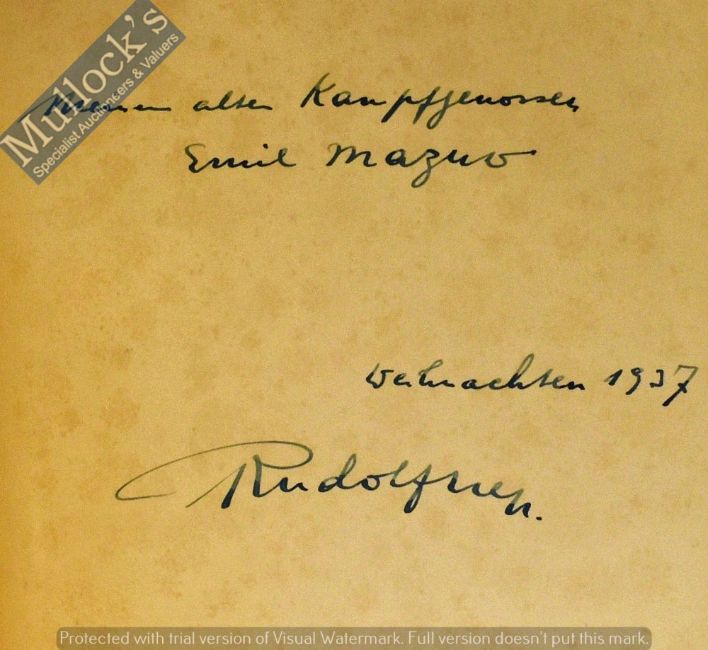 Mullock's
Specialist Auctioneers & Valuers
Meinem alten Kampfgenossen
Emil Mazuw
Weihnachten 1937
Rudolf Hess.
Protected with trial version of Visual Watermark. Full version doesn't put this mark.